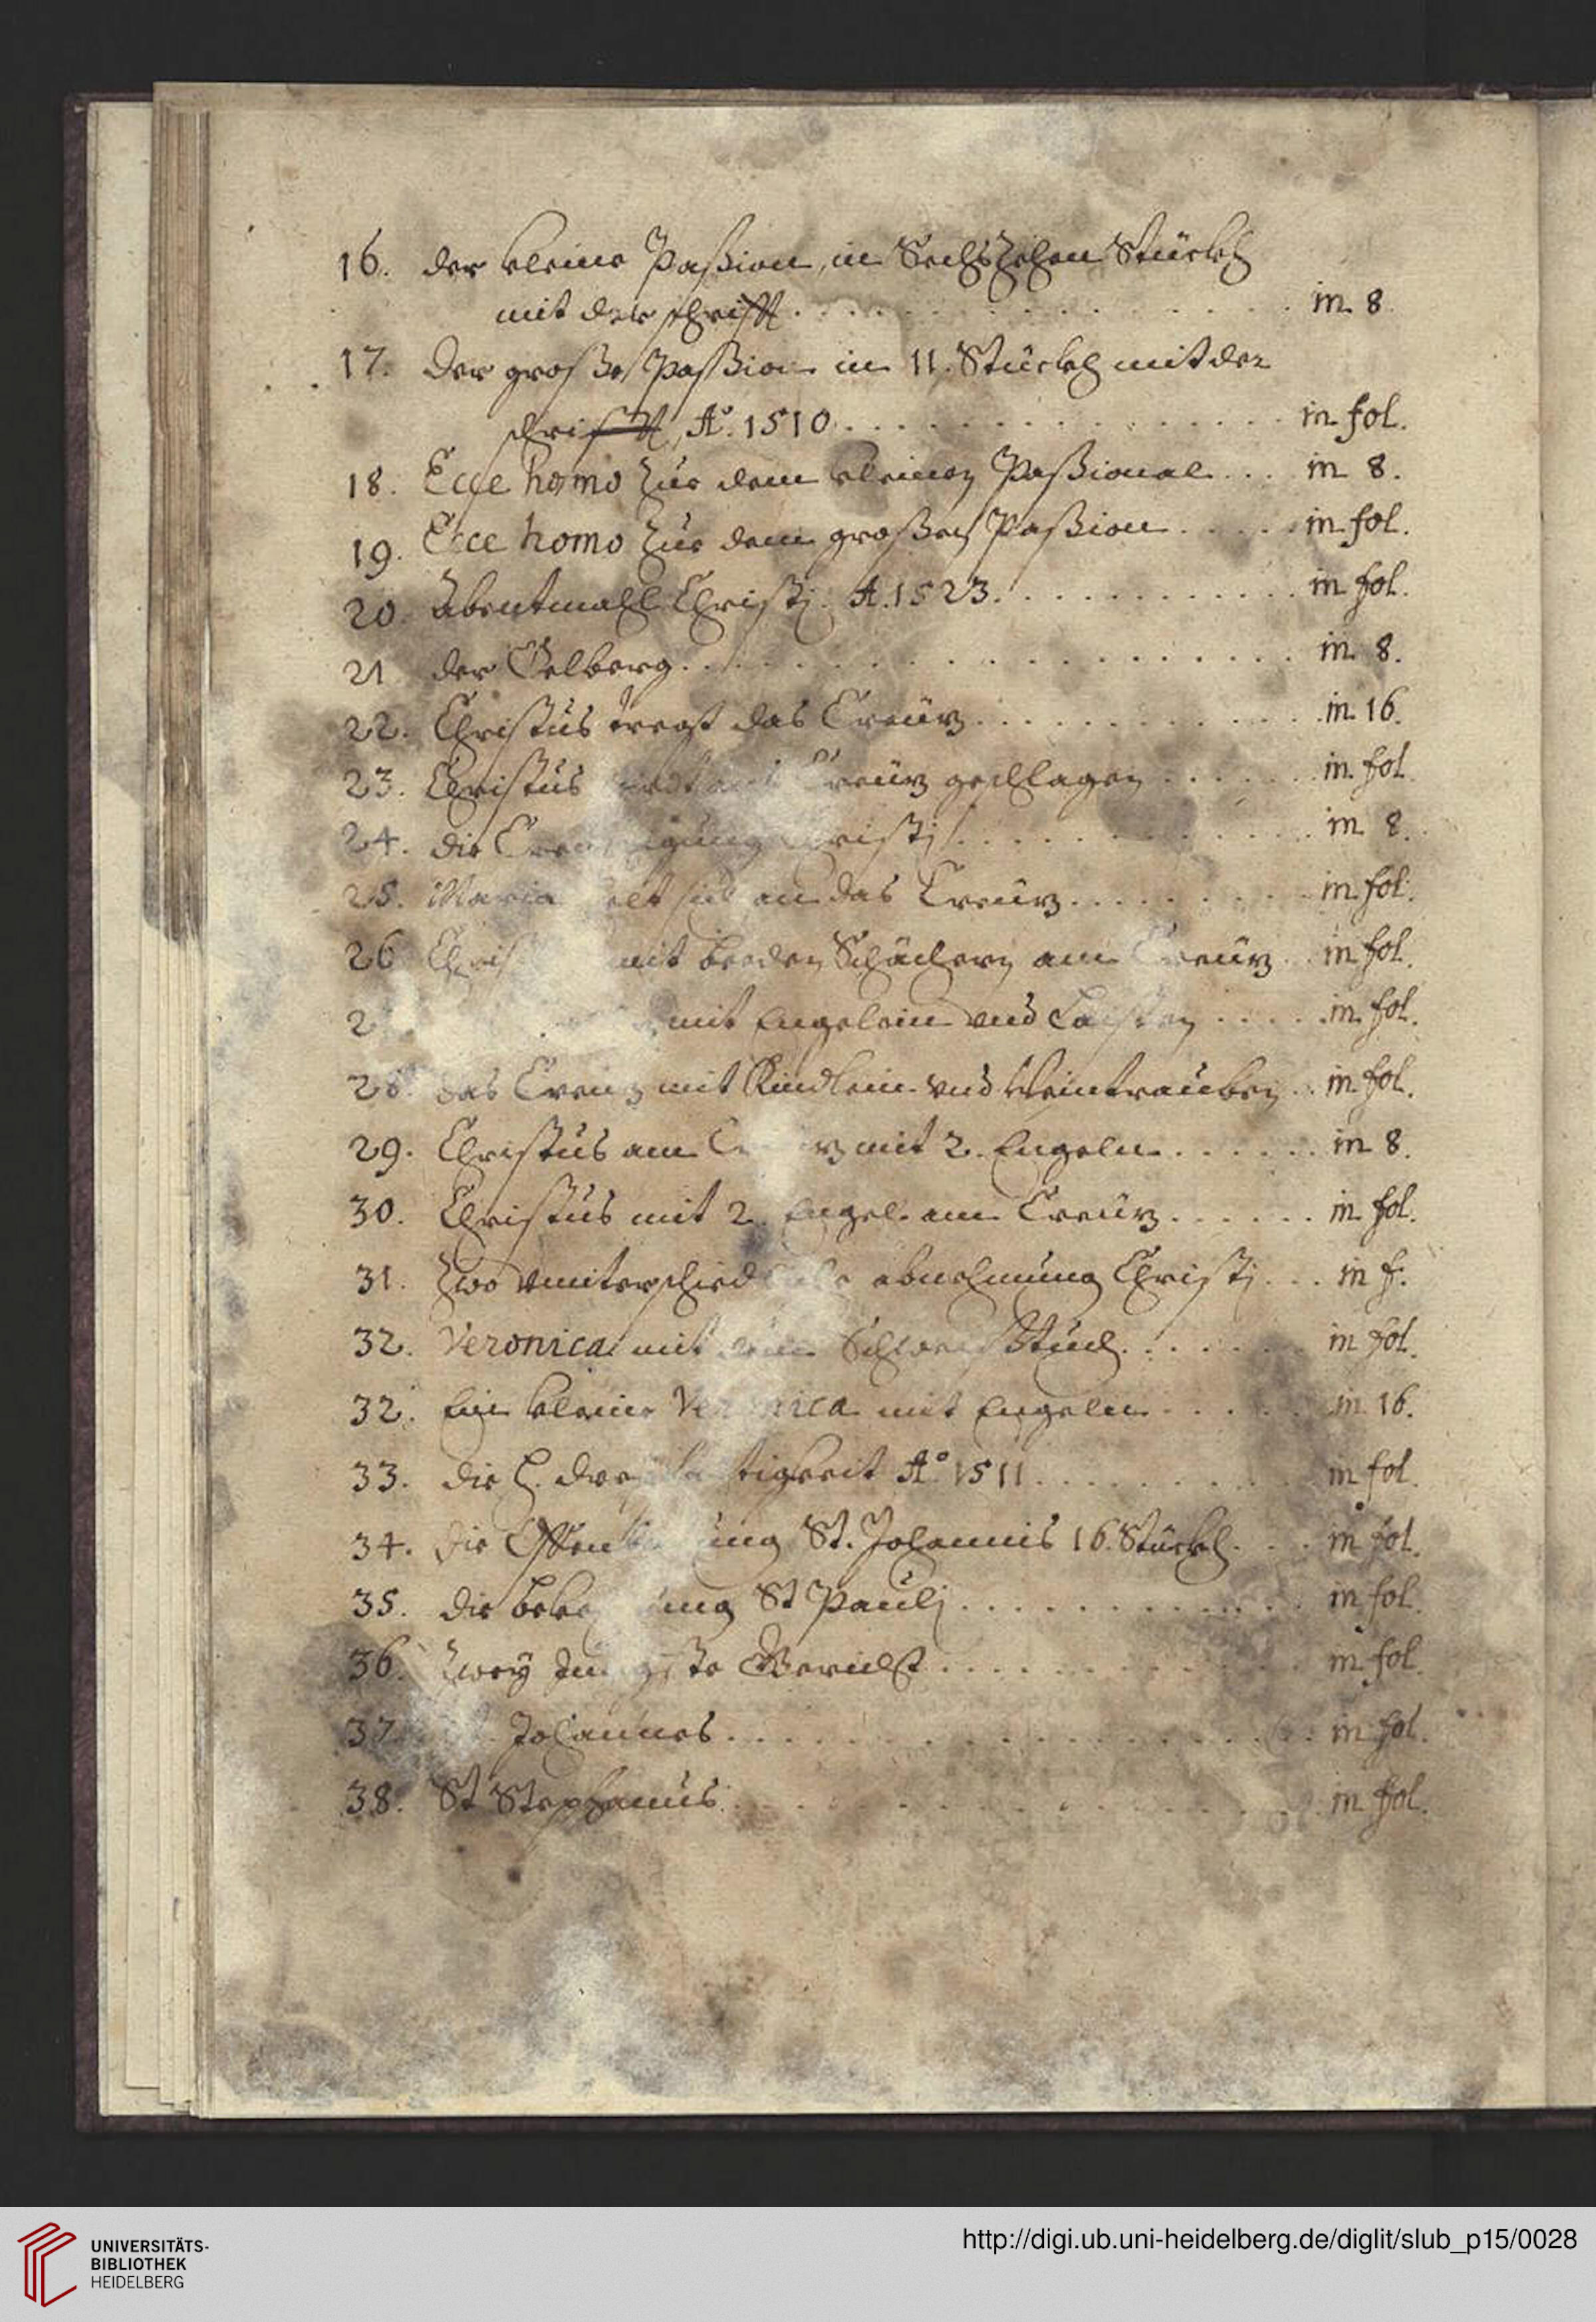 16. der kleine Paßion, in Sechszehen Stückh
mit der schrifft . . . . . . . . . . . . in 8.
17. der große Paßion in 11. Stückh mit der
schrifft, Aº. 1510 . . . . . . . . . . . . in fol.
18. Ecce homo zue dem kleinen Paßional . . . in 8.
19. Ecce homo zue dem großen Paßion . . . . . in fol.
20. Abentmahl Christj. A. 1523. . . . . . . . . . . in fol.
21 der Öelberg . . . . . . . . . . . . . . . . in 8.
22. Christus tregt das Creütz . . . . . . . . . . . in 16.
23. Christus Creütz geschlagen . . . . . . in fol
24. die . . . . . . . . . . in 8.
25. Maria an das Creütz . . . . . . . . in fol.
26 mit beeden Schächern am Creütz . . in fol.
mit Engelein vnd . . . . . in fol.
28. das Creutz mit Kindlein vnd Weintrauben . . in fol.
29. Christus am mit 2. Engeln . . . . . . in 8.
30. Christus mit 2. Engel am Creütz . . . . . . in fol.
31. Zwo abnehmung Christj . . . in f.
32. Veronica mit dem Schweißtuch . . . . . . in fol.
32. Ein kleine Veronica mit Engeln . . . . . in 16.
33. die H. Aº 1511 . . . . . . . . . in fol.
34. die St. Johannis 16. Stückh . . . in fol.
35. die St Paulj . . . . . . . . . . . . in fol.
36. Zwey Gericht . . . . . . . . . . in fol.
37. Johannes . . . . . . . . . . . . . . . . in fol.
38. St Stephanus . . . . . . . . . . . . . . in fol.
UNIVERSITÄTS-
BIBLIOTHEK
HEIDELBERG
http://digi.ub.uni-heidelberg.de/diglit/slub_p15/0028